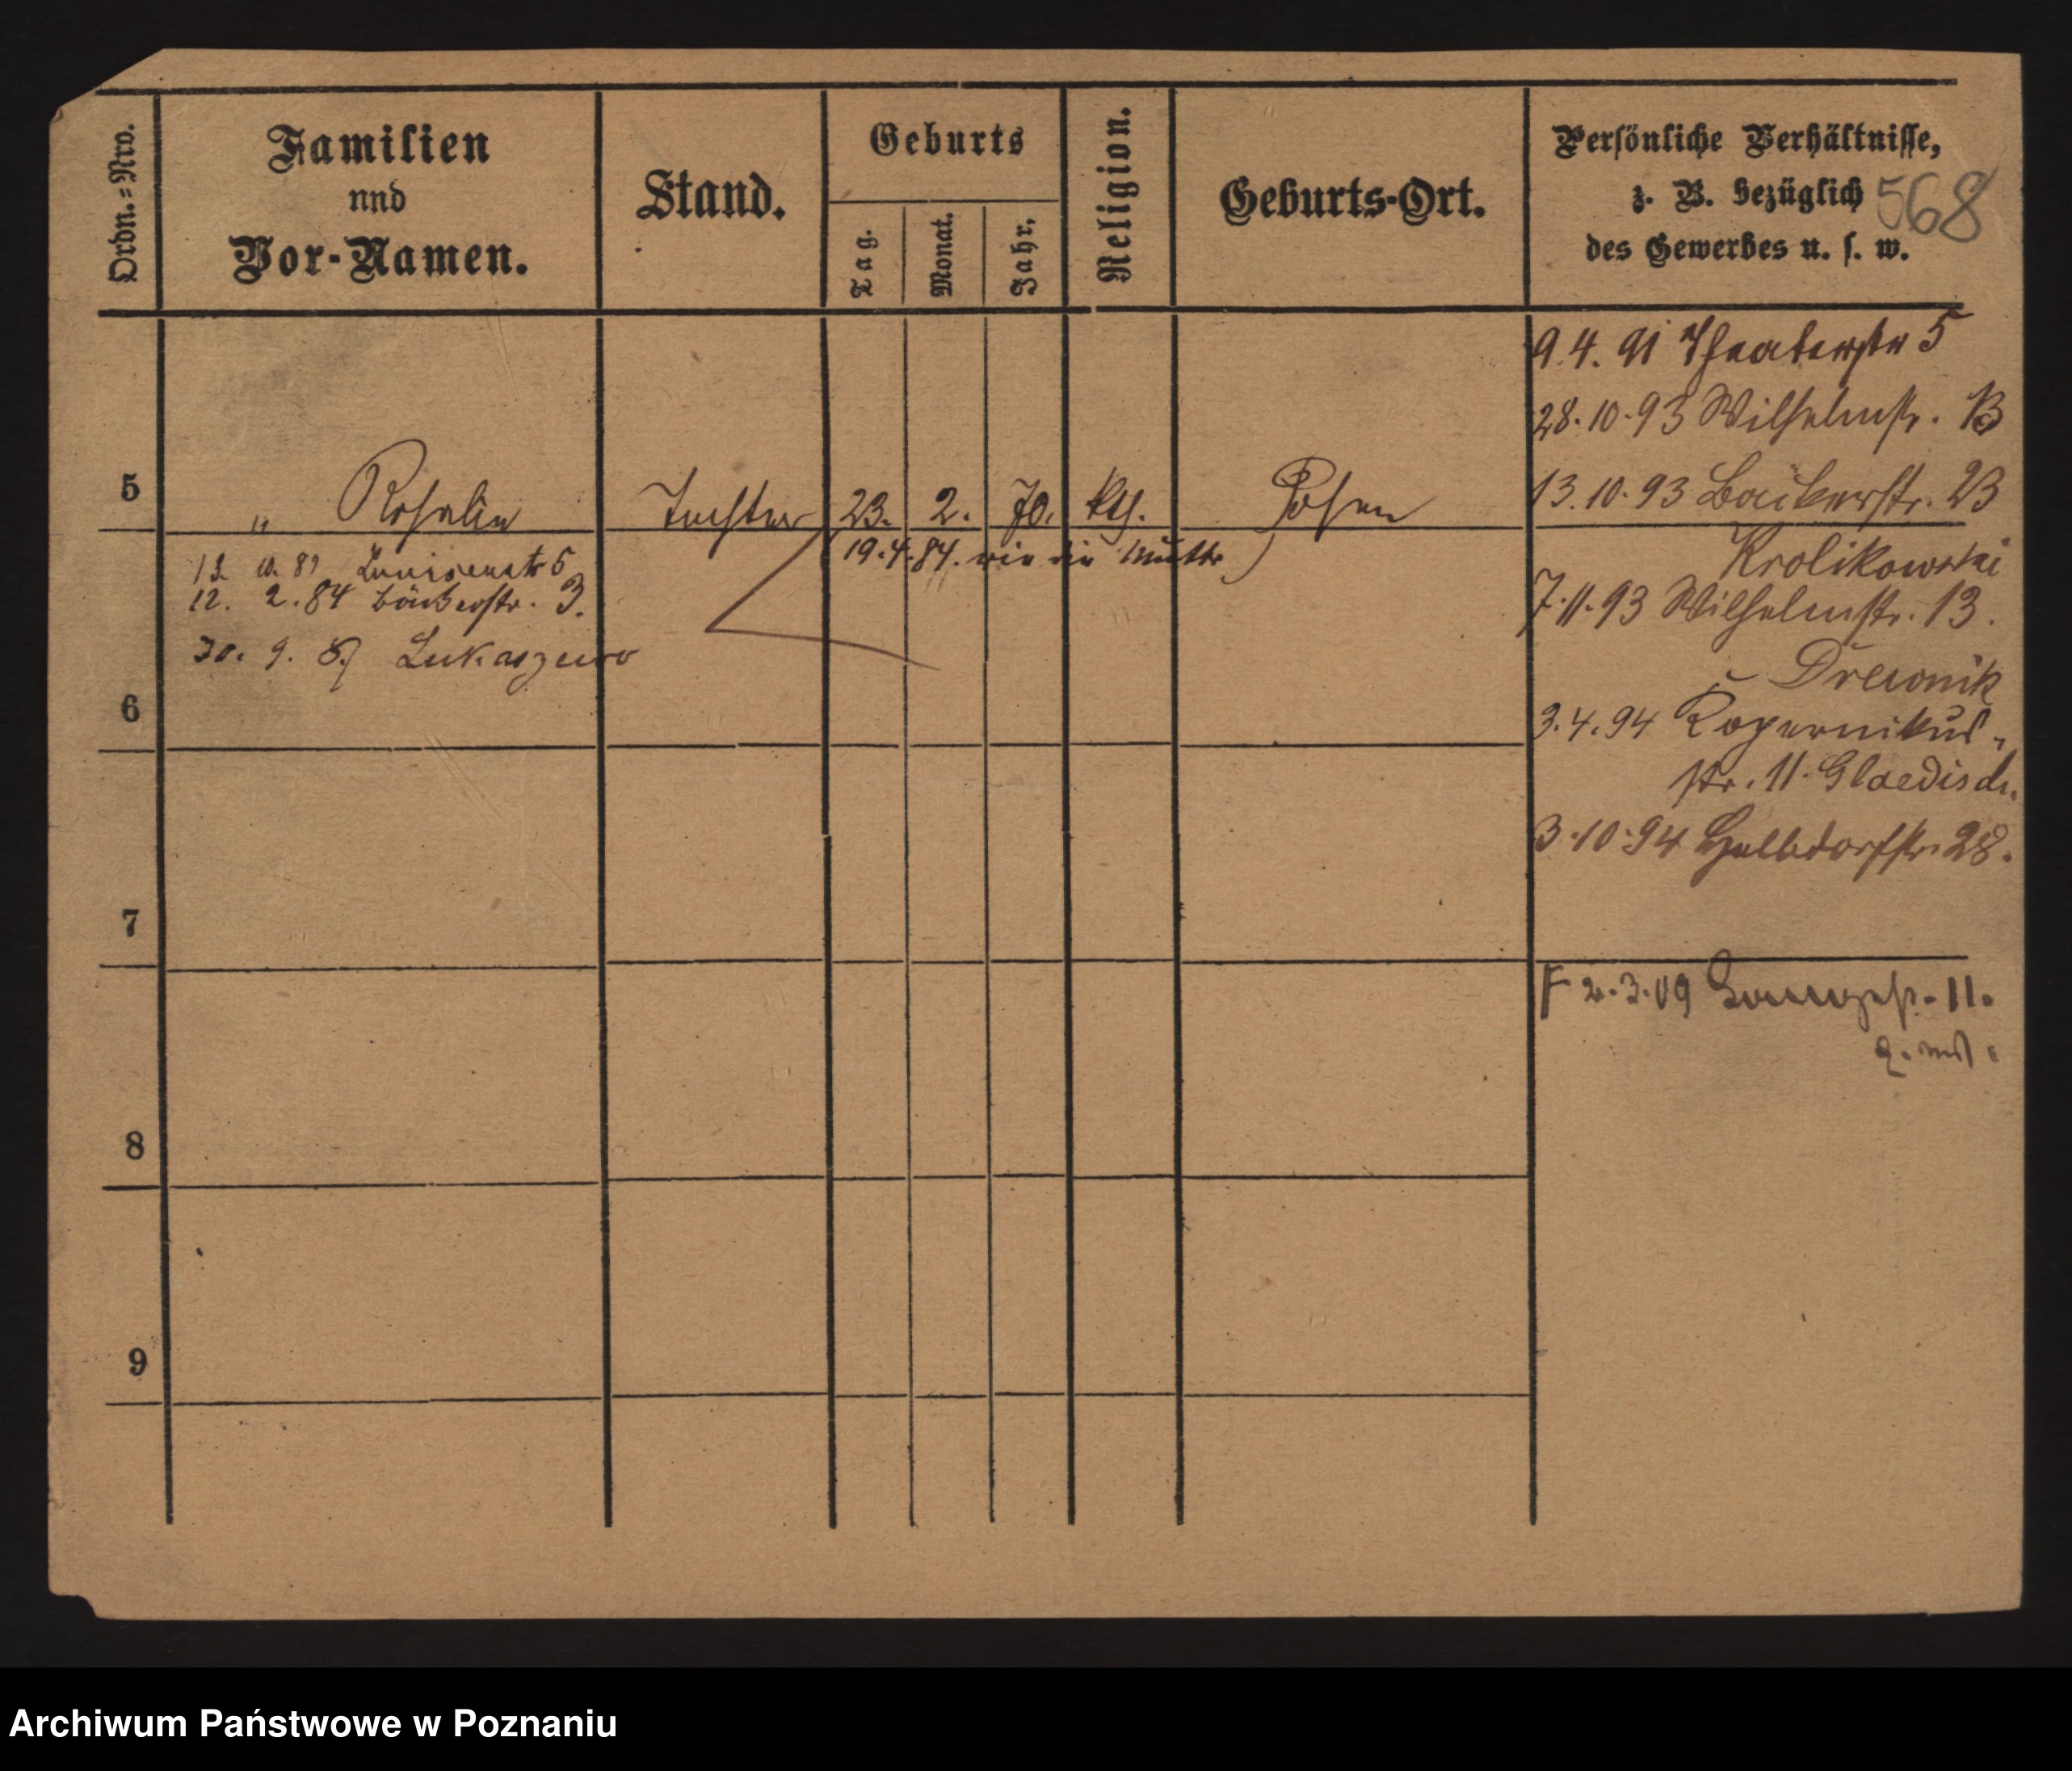 Ordn.=Nro.
Familien
nnd
Vor-Namen.
Stand.
Geburts
Tag.
Monat.
Jahr.
Religion.
Geburts-Ort.
Persönliche Verhältnisse,
z. B. bezüglich
des Gewerbes u. s. w.
568
9.4.91 Theaterstr 5
28.10.93 Wilhelmstr. 13
13.10.93 Bäckerstr. 23
5 " Rosalie Tochter 23. 2. 70. kth. Posen
19.4.84. wie die Mutter
Krolikowski
7.11.93 Wilhelmstr. 13.
Drewnik
3.4.94 Kopernikus-
str. 11. Glaedisch.
3.10.94 Halbdorfstr. 28.
13. 10. 81 Louisenstr 5
12. 2. 84 Bäckerstr. 3.
30. 9. 87 Lukaszewo
6
7
2.3.09 11.
8
9
Archiwum Państwowe w Poznaniu